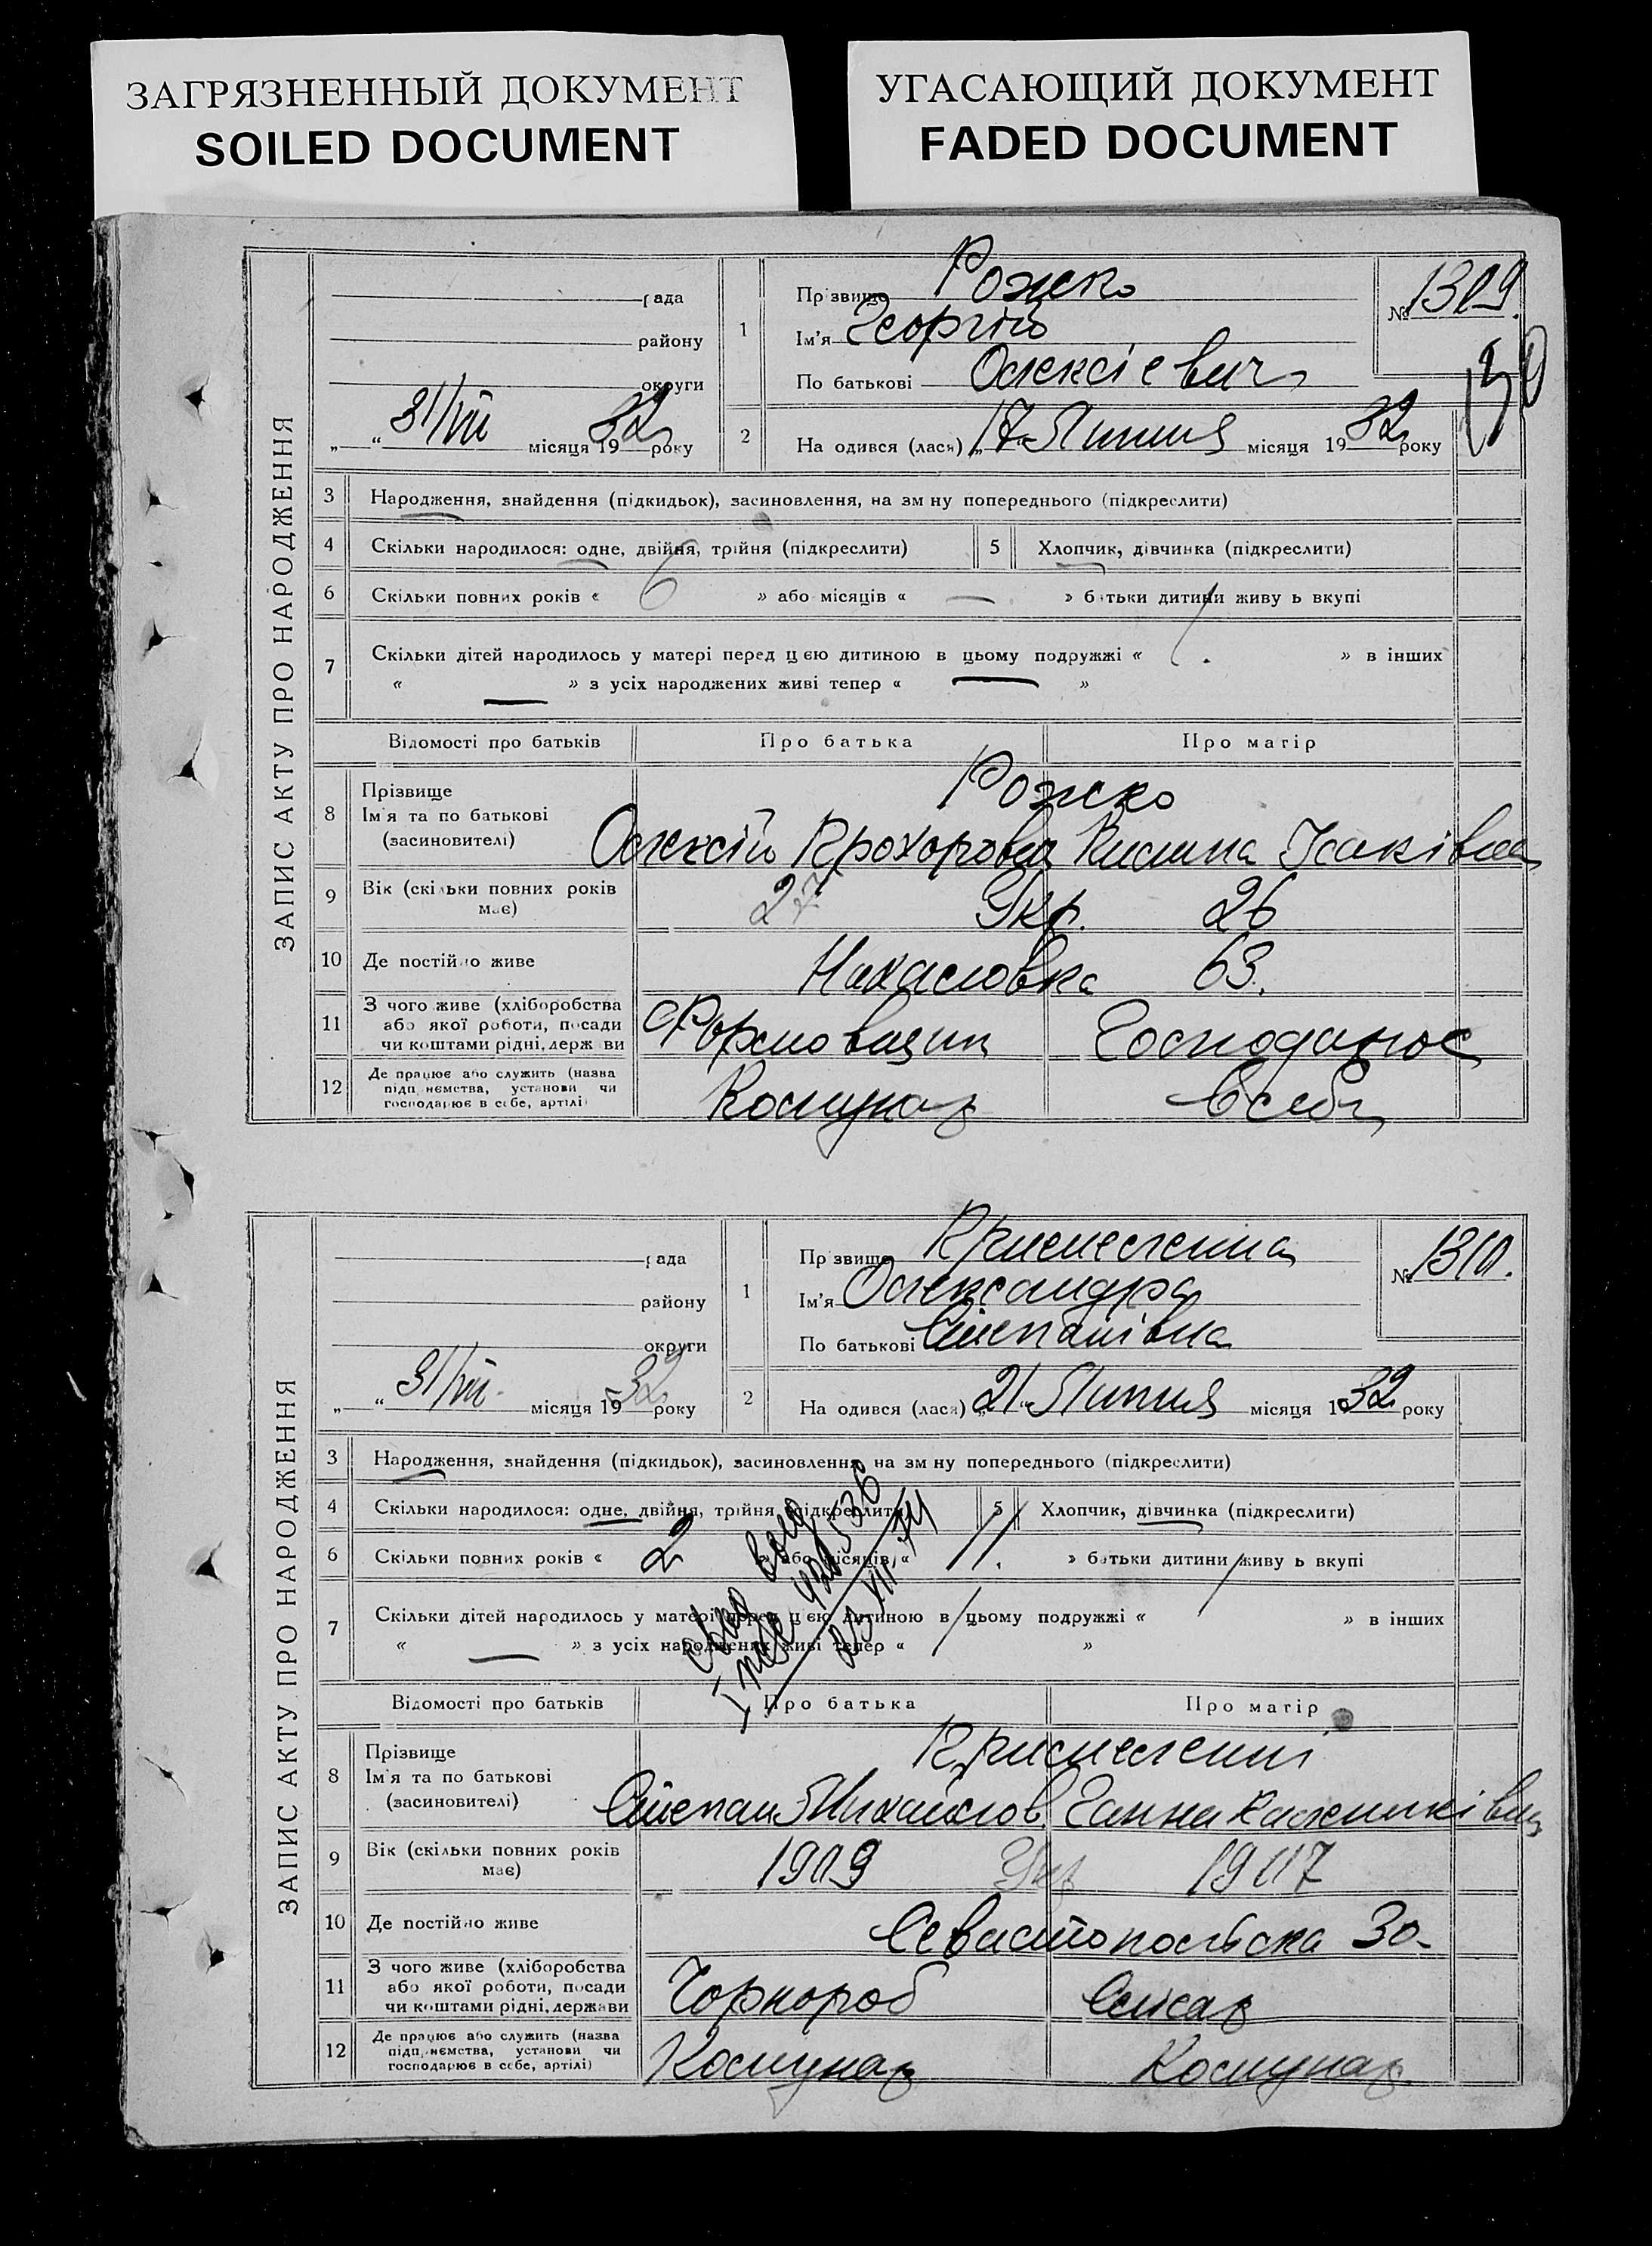 ЗАГРЯЗНЕННЫЙ ДОКУМЕНТ
SOILED DOCUMENT
УГАСАЮЩИЙ ДОКУМЕНТ
FADED DOCUMENT
ЗАПИС АКТУ ПРО НАРОДЖЕННЯ
рада
району
округи
„ “ 31/VII місяця 1932 року
1
Прізвище Рожко
Ім'я Георгій
По батькові Олексієвич
№ 1309.
2
На одився (лася) „17“ Липня місяця 1932 року
3 Народження, знайдення (підкидьок), засиновлення, на зм ну попереднього (підкреслити)
4 Скільки народилося: одне, двійня, трійня (підкреслити)
5 Хлопчик, дівчинка (підкреслити)
6 Скільки повних років « 6 » або місяців « — » б тьки дитини живу ь вкупі
7 Скільки дітей народилось у матері перед ц єю дитиною в цьому подружжі « » в інших
« — » з усіх народжених живі тепер « — »
Відомості про батьків
Про батька
Про матір
8 Прізвище
Ім'я та по батькові
(засиновителі)
Рожко
Олексій Прохорович
9 Вік (скільки повних років
має)
27 Укр. 26
10 Де постійно живе
63.
11 З чого живе (хліборобства
або якої роботи, посади
чи коштами рідні, держ ви
Формовщик
Господарює
12 Де працює або служить (назва
підп нємства, установи чи
господарює в себе, артілі)
Комунар
в себе
ЗАПИС АКТУ ПРО НАРОДЖЕННЯ
рада
району
округи
„ “ 31/VII місяця 1932 року
1
Прізвище
Ім'я Олександра
По батькові Степанівна
№ 1310.
2
На одився (лася) „21“ Липня місяця 1932 року
3 Народження, знайдення (підкидьок), засиновлення, на зм ну попереднього (підкреслити)
4 Скільки народилося: одне, двійня, трійня (підкреслити)
5 Хлопчик, дівчинка (підкреслити)
6 Скільки повних років « 2 » або місяців « » батьки дитини живу ь вкупі
7 Скільки дітей народилось у матері перед ц єю дитиною в цьому подружжі « » в інших
« — » з усіх народжених живі тепер « »
Відомості про батьків
Про батька
Про матір
8 Прізвище
Ім'я та по батькові
(засиновителі)
Степан Михайлов. Ганна
9 Вік (скільки повних років
має)
1909 Укр 1907
10 Де постійно живе
Севастопольска 30
11 З чого живе (хліборобства
або якої роботи, посади
чи коштами рідні, держави
Чорнороб
Слюсар
12 Де працює або служить (назва
підп нємства, установи чи
господарює в себе, артілі)
Комунар
Комунар